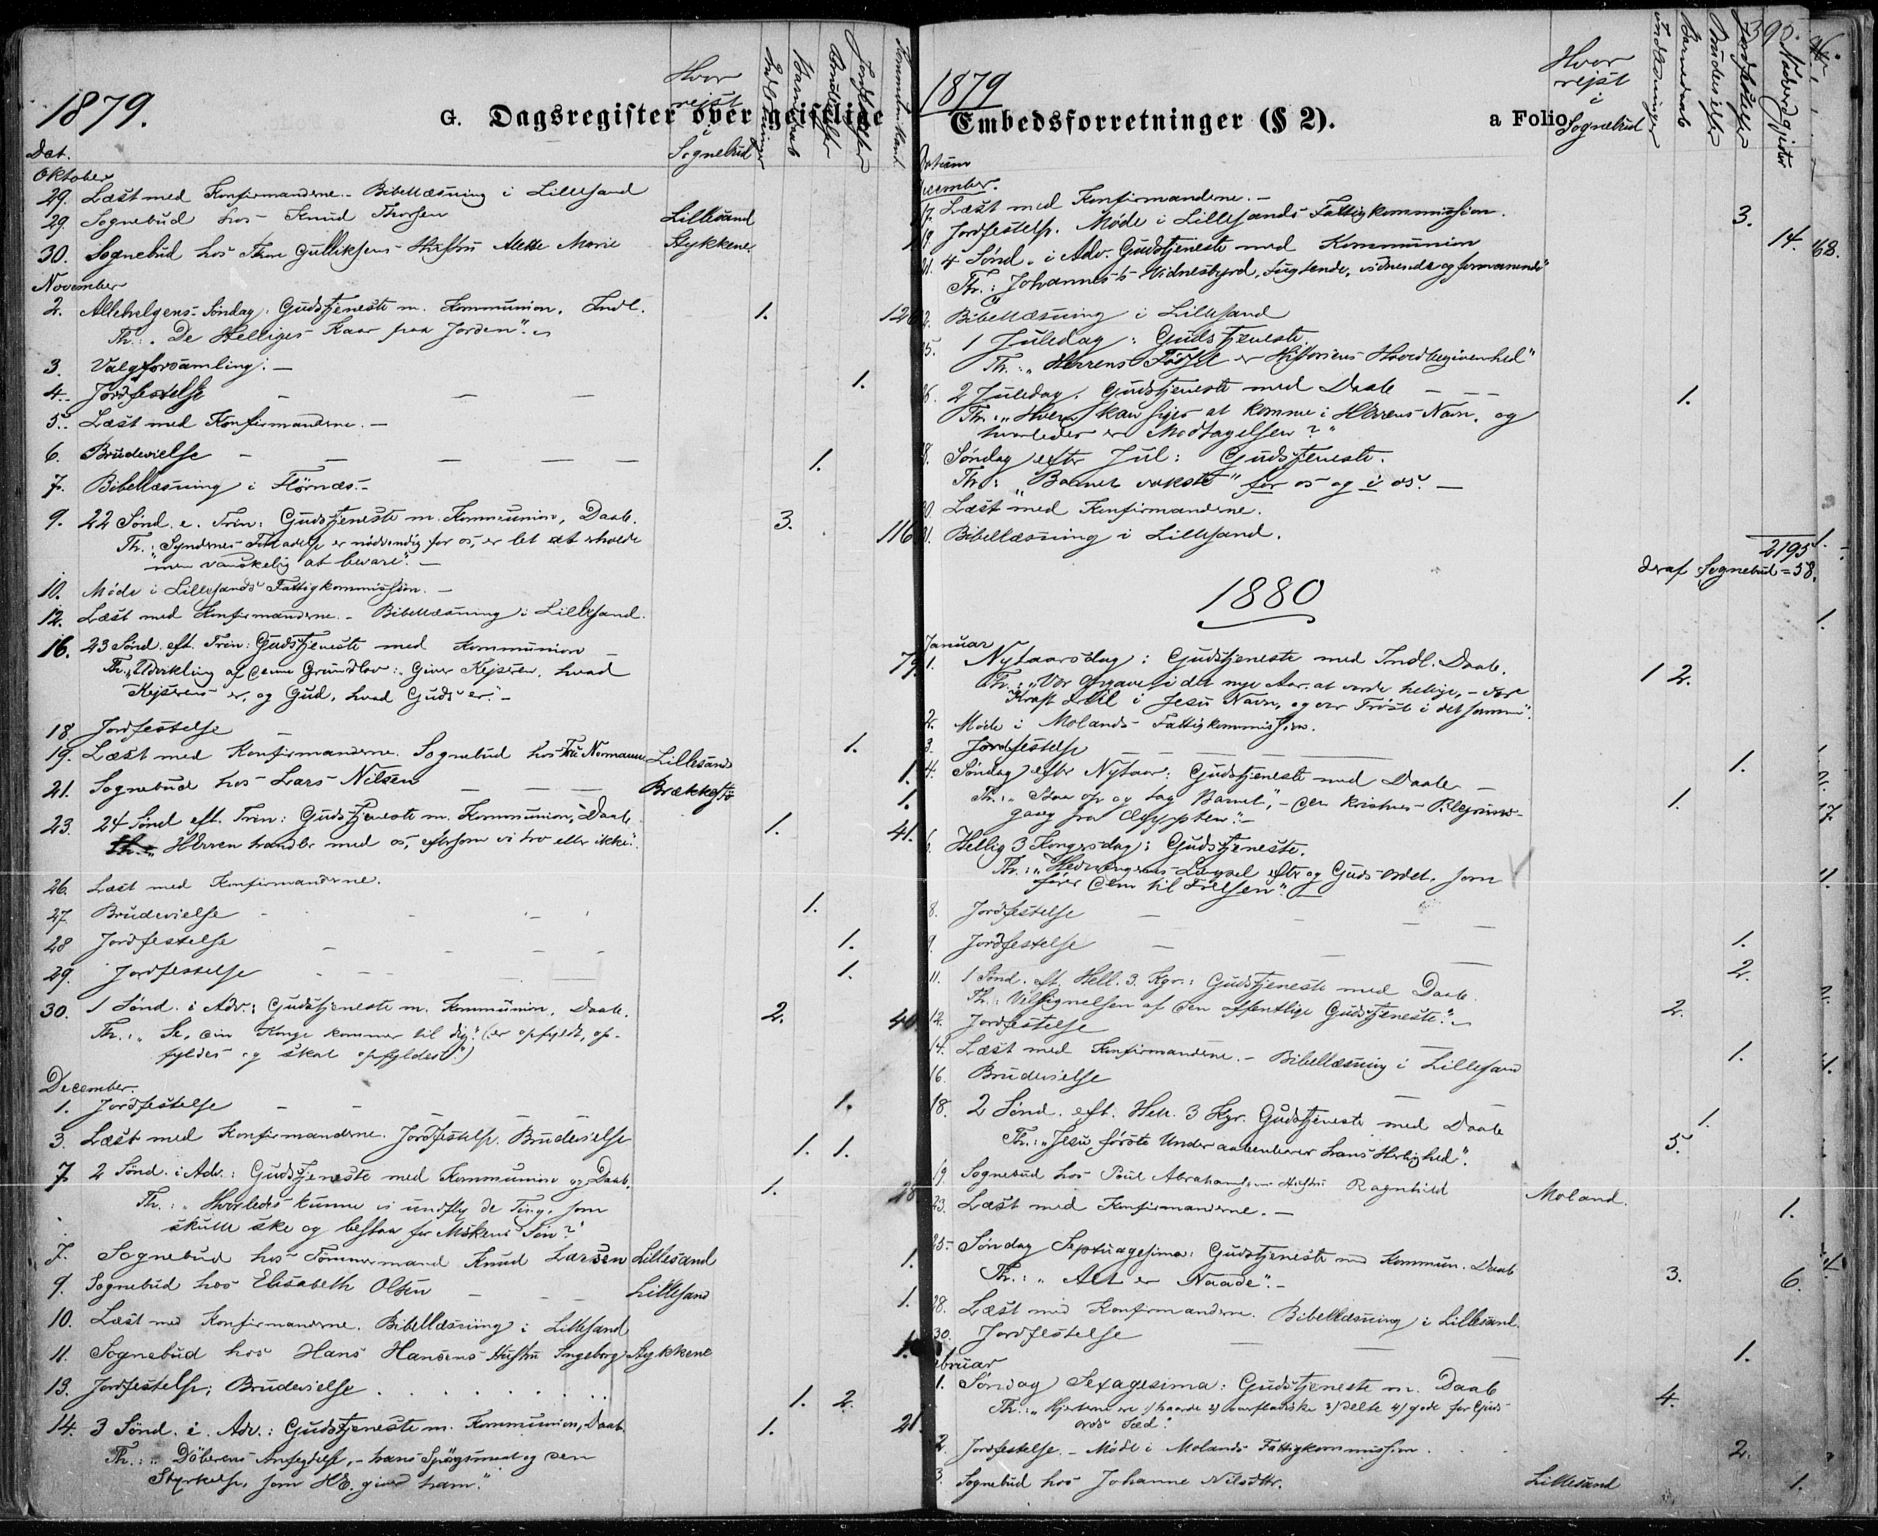 1879.
G. Dagsregister over geistlige
Hvor
rejst
i
Sognebud
Indledninger
Barnedaab
Brudevielser
Jordfæstelser
Dat.
Oktober
29. Læst med Konfirmanderne. - Bibellæsning i Lillesand
29. Sognebud hos Knud Thorsen Lillesand
30. Sognebud hos Thore Gulliksens Hustru Alette Marie Stykkene
November
2. Allehelgens-Søndag: Gudstjeneste m. Kommunion. Indl. 1. 126
Th.: „De Helliges Kaar paa Jorden".
3. Valgforsamling. -
4. Jordfestelse - - - 1.
5. Læst med Konfirmanderne. -
6. Brudevielse - - - - - 1.
7. Bibellæsning i Flörnæs. -
9. 22 Sønd. e. Trin: Gudstjeneste m. Kommunion, Daab. 3. 116
Th.: „Syndernes Forladelse er nødvendig for os, er let at erholde
men vanskelig at bevare". -
10. Møde i Lillesands Fattigkommission. -
12. Læst med Konfirmanderne. - Bibellæsning i Lillesand.
16. 23 Sønd. eft. Trin: Gudstjeneste med Kommunion - 79
Th.: Udvikling af denne Grundlov: „Giver Kejseren, hvad
Kejserens er, og Gud, hvad Guds er". -
18. Jordfestelse - - - 1.
19. Læst med Konfirmanderne. Sognebud hos Fru Normann Lillesand 1.
21. Sognebud hos Lars Nilsen - - - Brækkestø 1.
23. 24 Sønd. eft. Trin: Gudstjeneste m. Kommunion, Daab 1. 41.
Th.: „Herren handler med os, eftersom vi tro eller ikke".
26. Læst med Konfirmanderne.
27 Brudevielse - - - 1.
28 Jordfestelse - - - 1.
29. Jordfestelse - - - 1.
30. 1 Sønd. i Adv.: Gudstjeneste m. Kommunion, Daab. 2. 40
Th.: „Se, din Konge kommer til dig". (er opfyldt, op-
fyldes og skal opfyldes.")
December.
1. Jordfestelse - - - 1.
3. Læst med Konfirmanderne. Jordfestelse. Brudevielse 1. 1.
7. 2 Sønd. i Adv.: Gudstjeneste med Kommunion og Daab. 1. 28
Th.: „Hvorledes kunne vi undfly de Ting, som
skulle ske og bestaa for Mskens Søn?"
7. Sognebud hos Tömmermand Knud Larsen Lillesand 1.
9. Sognebud hos Elisabeth Olsen - - - Lillesand 1.
10. Læst med Konfirmanderne. Bibellæsning i Lillesand
11. Sognebud hos Hans Hansens Hustru Ingeborg Stykkene 1.
13. Jordfestelse; Brudevielse . . . . . 1. 2.
14. 3 Sønd. i Adv.: Gudstjeneste m. Kommunion, Daab 1. 21
Th.: „Döberens Anfegtelse, - hans Spørgsmaal og den
Styrkelse, som HE. giver ham".
1879
Embedsforretninger (§ 2).
a Folio
395.
Hvor
rejst
i
Sognebud
Indledninger
Barnedaab
Brudevielser
Jordfæstelser
Nadvergjester
Datum
December.
17. Læst med Konfirmanderne. -
Jordfestelse. Møde i Lillesands Fattigkommission. 3.
21. 4. Sønd. i Adv. Gudstjeneste med Kommunion 14. 68.
Th.: Johannes's Vidnesbyrd,
Bibellæsning i Lillesand
25. 1 Juledag: Gudstjeneste
Th.: „Herrens Fødsel er Historiens Hovedbegivenhed"
26. 2 Juledag. Gudstjeneste med Daab - - - 1.
Th.: „Hvem kan siges at komme i Herrens Navn, og
hvorledes er Modtagelsen?"
28. Søndag efter Jul: Gudstjeneste.
Th: „Barnet vokste" for os og i os. -
30. Læst med Konfirmanderne.
31. Bibellæsning i Lillesand.
2195
deraf Sognebud = 58.
1880
Januar
1. Nytaarsdag: Gudstjeneste med Indl. Daab. 1 2.
Th.: „Vor Opgave i det nye Aar, at vorde hellige, - vor
Kraft dertil i Jesu Navn, og vor Trøst i det samme".
2. Møde i Molands Fattigkommission.
3. Jordfestelse - - - 1.
4. Søndag efter Nytaar: Gudstjeneste med Daab - 1.
Th.: „Staa op og tag Barnet", - den kristnes Pilegrims-
gang fra Ægypten". -
6. Hellig 3 Kongersdag: Gudstjeneste.
Th.: „Hedningernes Længsel efter og Guds Ordet, som
fører dem til Frelsen". -
8. Jordfestelse - - -
9. Jordfestelse - - 1.
11. 1 Sønd. eft. Hell. 3. Kgr.: Gudstjeneste med Daab. 2.
Th.: Velsignelsen af den offentlige Gudstjeneste".
12. Jordfestelse - 1.
14. Læst med Konfirmanderne. - Bibellæsning i Lillesand
16. Brudevielse - - 1.
18. 2 Sønd. eft. Hell. 3 Kgr. Gudstjeneste med Daab 5.
Th.: „Jesu første Under aabenbarer hans Herlighed".
19. Sognebud hos Poul Abrahamsens Hustru Ragnhild Moland. 1.
23. Læst med Konfirmanderne. -
25. Søndag Septuagesima: Gudstjeneste med Kommun. Daab 3. 6.
Th.: „Alt er Naade". -
28. Læst med Konfirmanderne. Bibellæsning i Lillesand.
30. Jordfestelse - - - 1.
Februar
1. Søndag Sexagesima: Gudstjeneste m. Daab 4.
Th.: „Hjerterne ere 1) haarde 2) overfladiske 3) delte 4) gode for Guds
Ords Sæd."
2. Jordfestelse. - Møde i Molands Fattigkommission. 2.
3. Sognebud hos Johanne Nilsdtr. Lillesand 1.